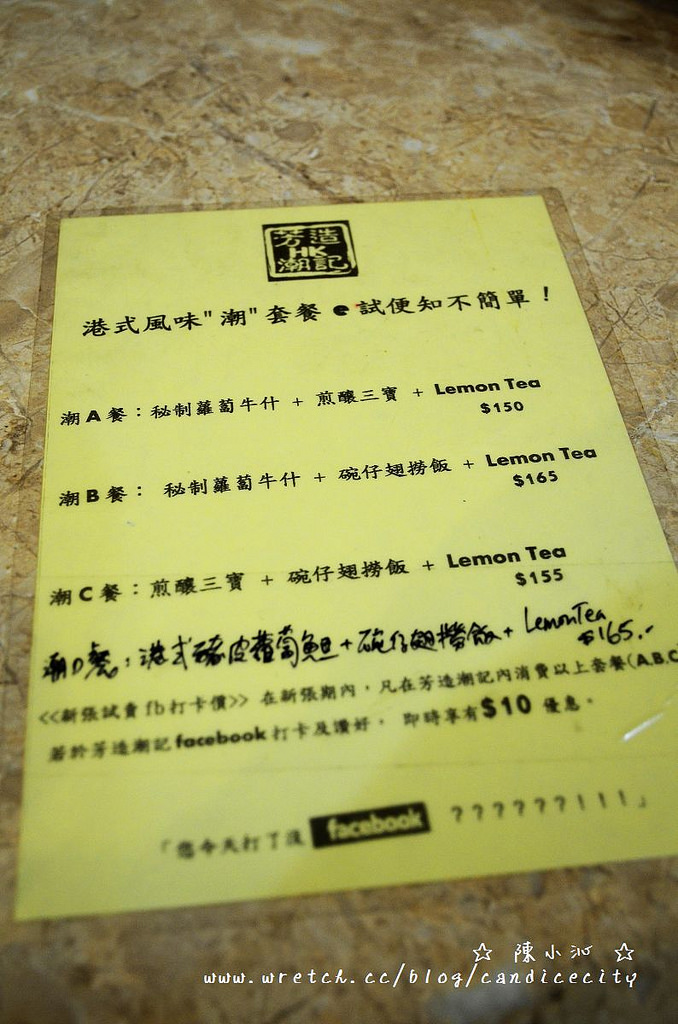 芳造
HK
潮記
港式風味"潮"套餐 e 試便知不簡單！
潮A餐：秘制蘿蔔牛什 + 煎釀三寶 + Lemon Tea
$150
潮B餐： 秘制蘿蔔牛什 + 碗仔翅撈飯 + Lemon Tea
$165
潮C餐：煎釀三寶 + 碗仔翅撈飯 + Lemon Tea
$155
潮D餐：港式豬皮蘿蔔魷+碗仔翅撈飯+ Lemon Tea
$165.-
<<新張試賣fb打卡價>> 在新張期內，凡在芳造潮記內消費以上套餐(A.B.C
若於芳造潮記facebook打卡及讚好， 即時享有$10 優惠。
「您今天打了沒 facebook ??????!!!」
☆ 陳小沁 ☆
www.wretch.cc/blog/candicecity